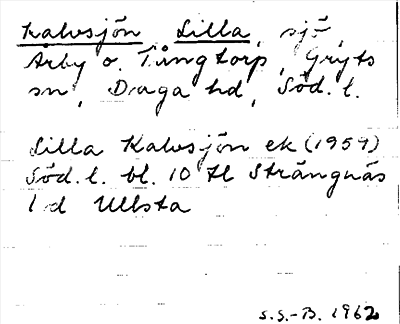 Kalvsjön, Lilla, sjö,
Årby o. Tångtorp, Gryts
sn, Daga hd, Söd. l.
Lilla Kalvsjön ek (1959)
Söd. l. bl. 10 Strängnäs
Ullsta
S.S.-B. 1962